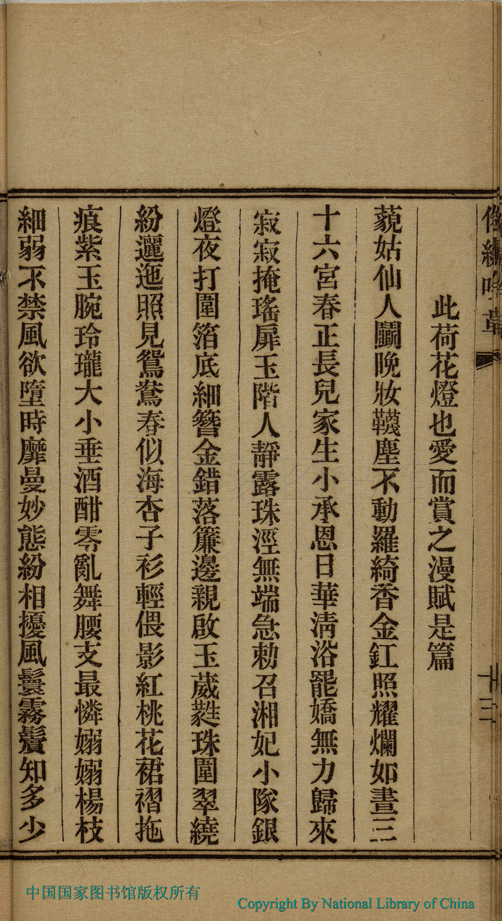 十三
此荷花燈也愛而賞之漫賦是篇
藐姑仙人鬭晚妝韈塵不動羅綺香金釭照耀爛如晝三
十六宮春正長兒家生小承恩日華清浴罷嬌無力歸來
寂寂掩瑤扉玉階人靜露珠溼無端急勅召湘妃小隊銀
燈夜打圍箔底細簪金錯落簾邊親啟玉葳蕤珠圍翠繞
紛邐迤照見鴛鴦春似海杏子衫輕偎影紅桃花裙褶拖
痕紫玉腕玲瓏大小垂酒酣零亂舞腰支最憐嫋嫋楊枝
細弱不禁風欲墮時靡曼妙態紛相擾風鬟霧鬢知多少
中国国家图书馆版权所有
Copyright By National Library of China